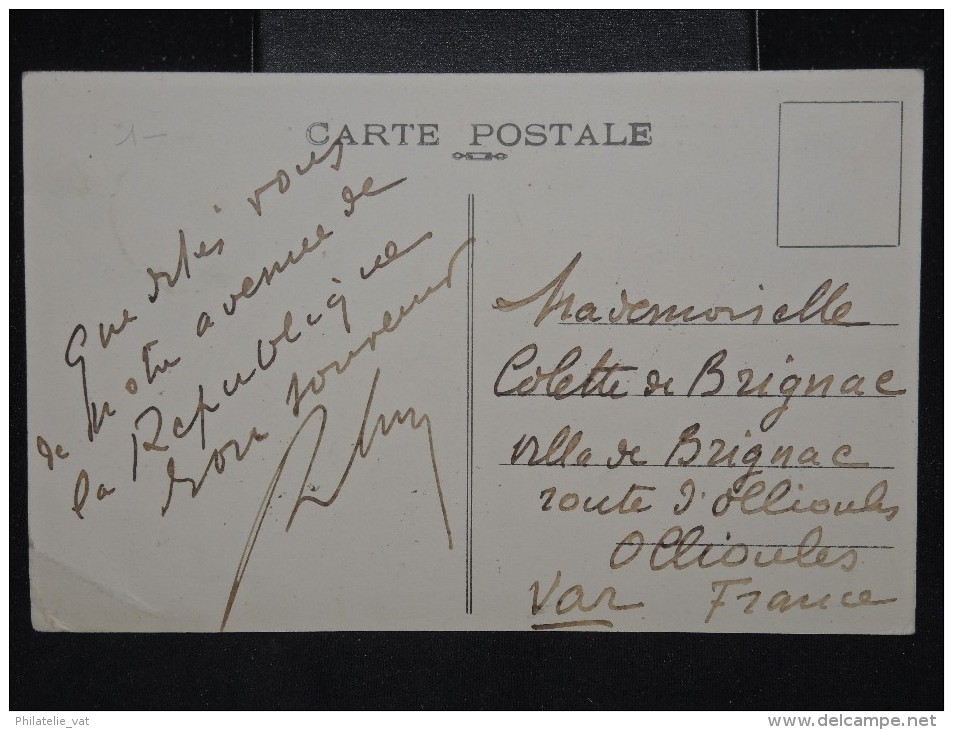 1-
CARTE POSTALE
Que dites vous
de notre avenue de
la République
bon souvenir
Mademoiselle
Colette de Brignac
villa de Brignac
route d'Ollioules
Ollioules
Var France
Philatelie_vat
www.delcampe.net